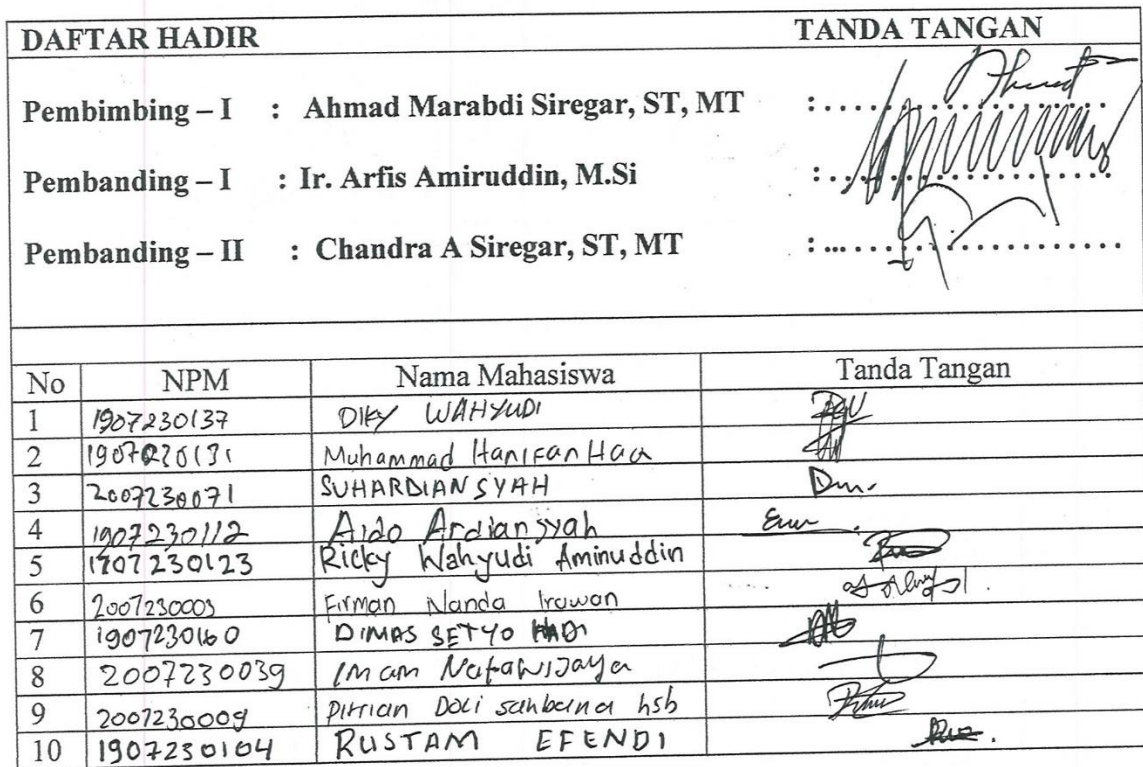 DAFTAR HADIR TANDA TANGAN
Pembimbing – I : Ahmad Marabdi Siregar, ST, MT : ....................
Pembanding – I : Ir. Arfis Amiruddin, M.Si : ....................
Pembanding – II : Chandra A Siregar, ST, MT : ....................
No NPM Nama Mahasiswa Tanda Tangan
1 1907230137 DIKY WAHYUDI
2 1907230131 Muhammad Hanifan Haq
3 2007230071 SUHARDIANSYAH
4 1907230112 Aido Ardiansyah
5 1707230123 Ricky Wahyudi Aminuddin
6 2007230003 Firman Nanda Irawan
7 1907230160 DIMAS SETYO HADI
8 2007230039 Imam Natawijaya
9 2007230009 hsb
10 1907230104 RUSTAM EFENDI